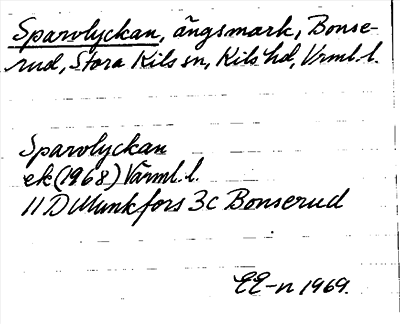 Sparvlyckan, ängsmark, Bonse-
rud, Stora Kils sn, Kils hd, Vrml. l.
Sparvlyckan
ek (1968) Värml. l.
11 D Munkfors 3c Bonserud
EE-n 1969.